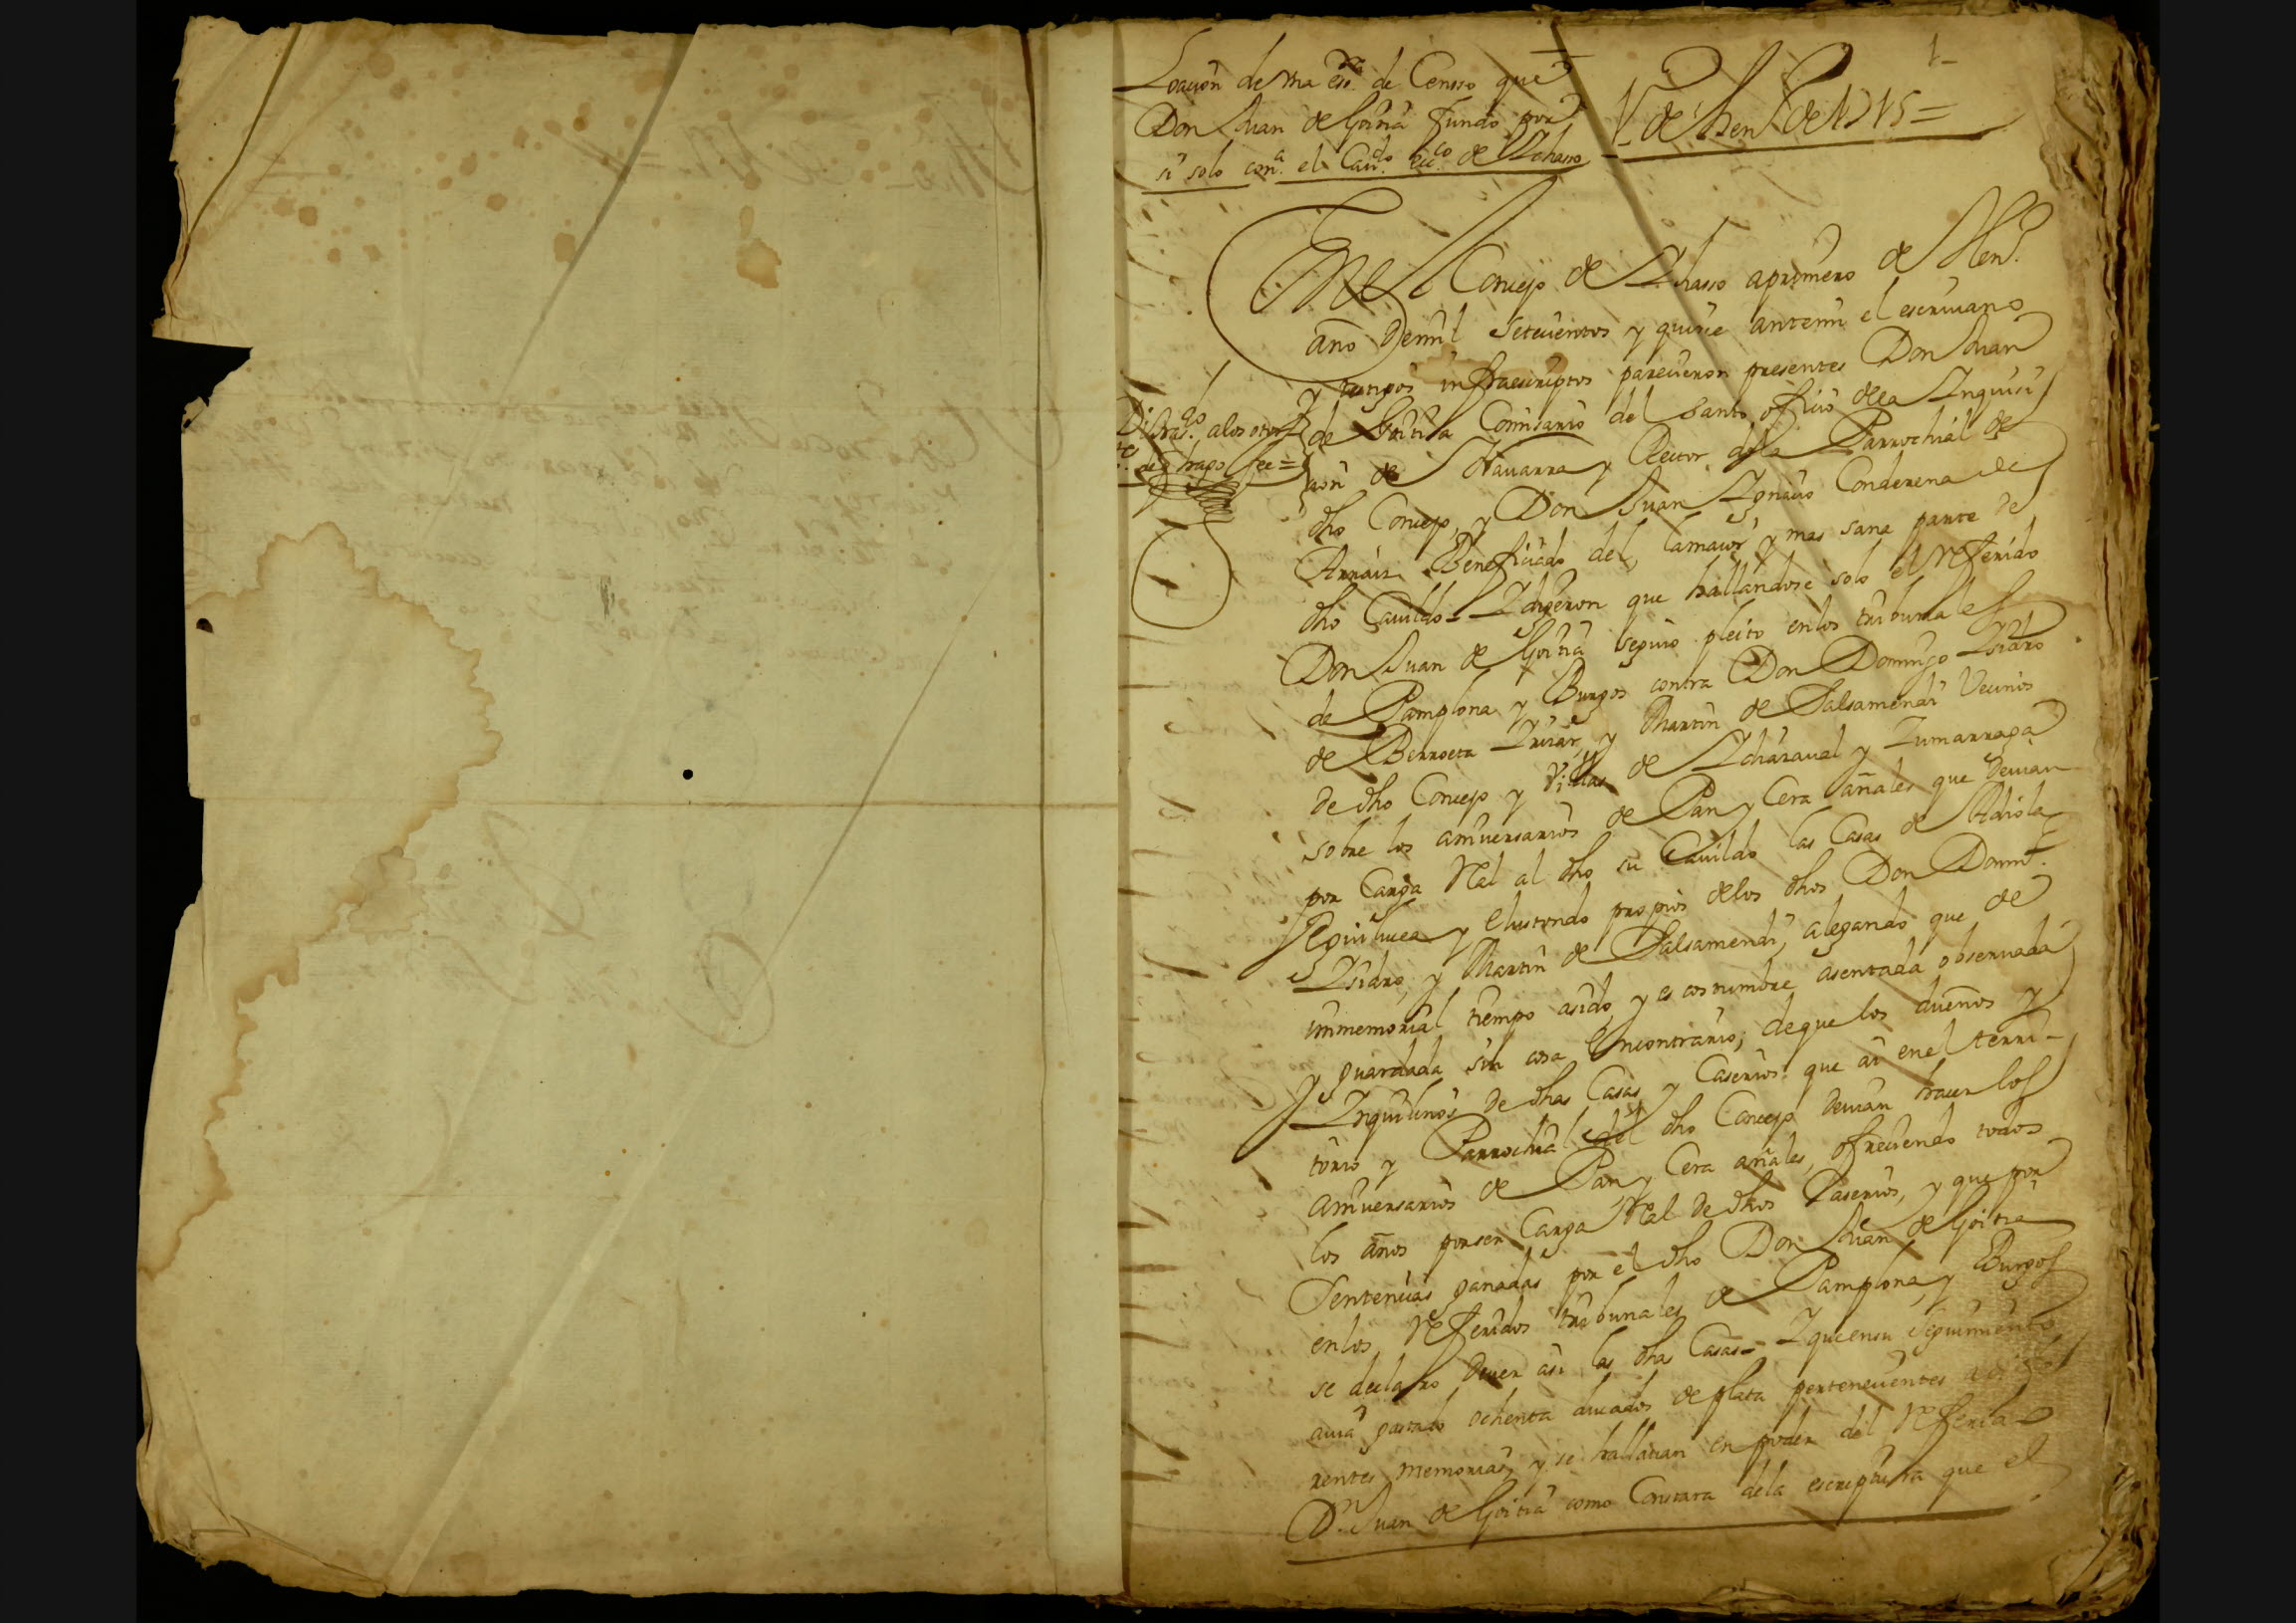 1
Loaçión de vna essra. de Censso que
Don Juan de Goitia fundó por
si solo cona. el Caudo. ecco. de Ichasso
1 de hen.º de 1715=
En el Concejo de Ichasso a primero de Hen.º
año de mill setecientos y quince ante mi el escriuano
y testigos infraescriptos parecieron presentes Don Juan
de Goitia Comisario del santo oficio de la Inquisi
çión de Nauarra y Rector de la Parrochial de
dho Concejo, y Don Juan Ignaçio Conderena de
Arraiz Beneficiado del, la maior y mas sana parte de
dho Cauildo= I dijeron que hallandose solo el referido
Don Juan de Goitia seguió pleito en los tribunales
de Pamplona y Burgos contra Don Domingo Isidro
de Berroeta Irizar, y Martin de Salsamendi Vecinos
de dho Concejo y Villas de Icharaual y Zumarraga
sobre los aniuersarios de Pan y Cera añales que deuian
por Carga Real al dho su Cauildo las Casas de Adiola
Eguiluçea y Elustondo propios de los dhos Don Domº.
Isidro, y Martin de Salsamendi, alegando que de
immemorial tiempo asido y es costumbre asentada obseruada
y guardada sin cosa en contrario; de que los dueños y
Inquilinos de dhas Casas y Caserios que ai en el terri-
torio y Parrochial del dho Concejo deuian hacer los
aniuersarios de Pan y Cera añales, ofreciendo todos
los años por ser Carga Real de dhos Caserios, y que por
Sentencias ganadas por el dho Don Juan de Goitia
en los referidos tribunales de Pamplona, y Burgos
se declaró deuer asi las dhas Casas= I que en su seguimiento
auia gastado ochenta ducados de plata pertenecientes
rentes memorias, y se hallauan en poder del referido
Dn. Juan de Goitia como Constara de la escriptura que el
alos otor
hago fee=